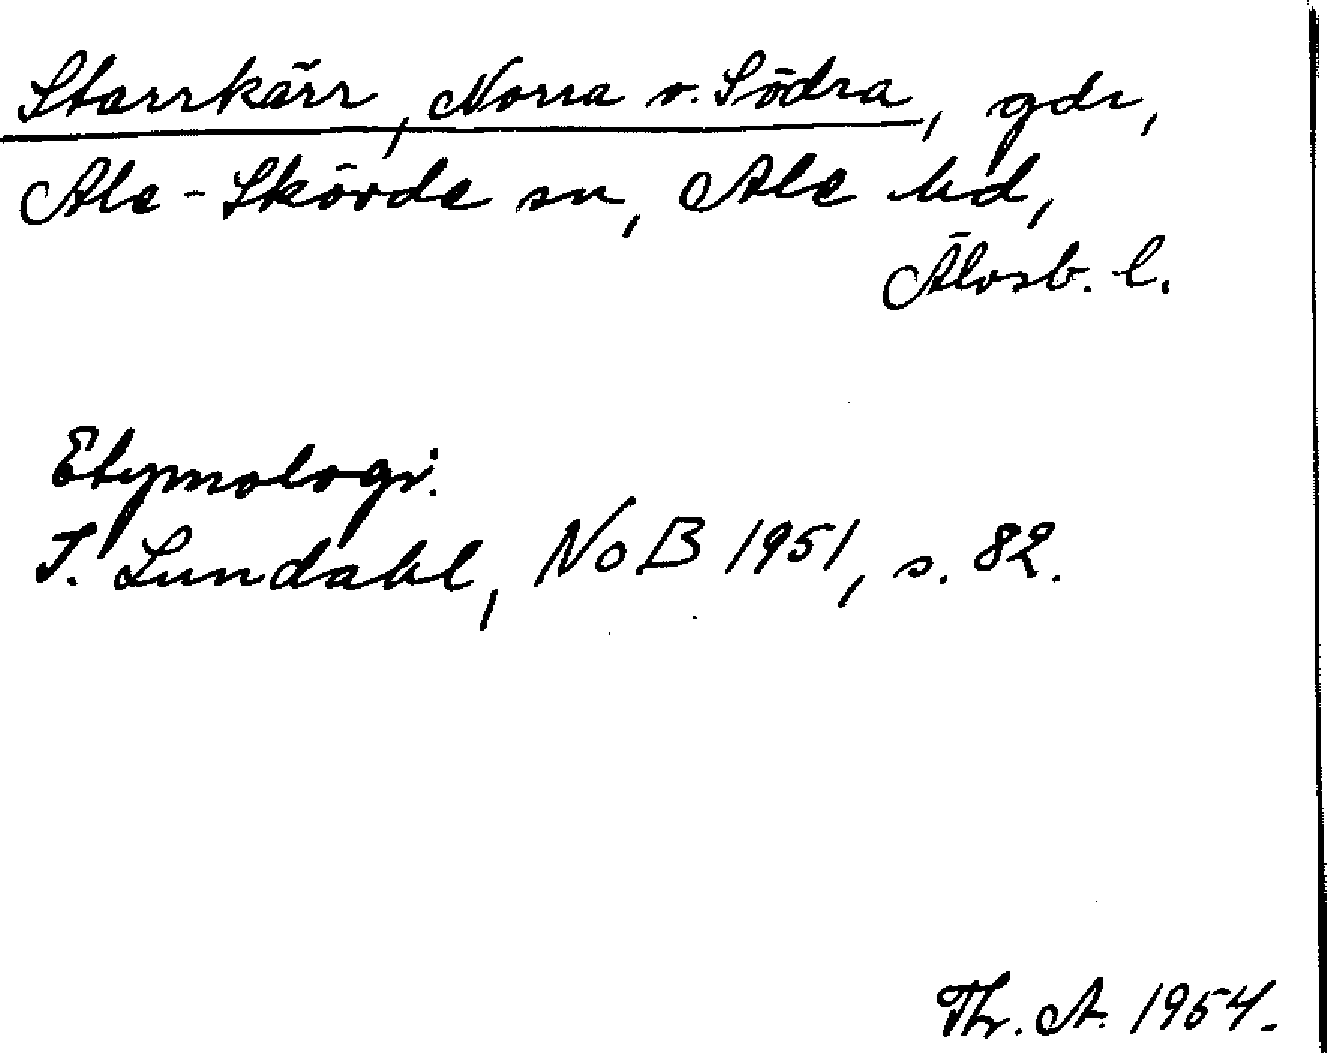 Starrkärr, Norra o. Södra, gdr,
Ale-Skövde sn, Ale hd,
Älvsb. l.
Etymologi:
I. Lundahl, NoB 1951, s. 82.
Th. A. 1954.